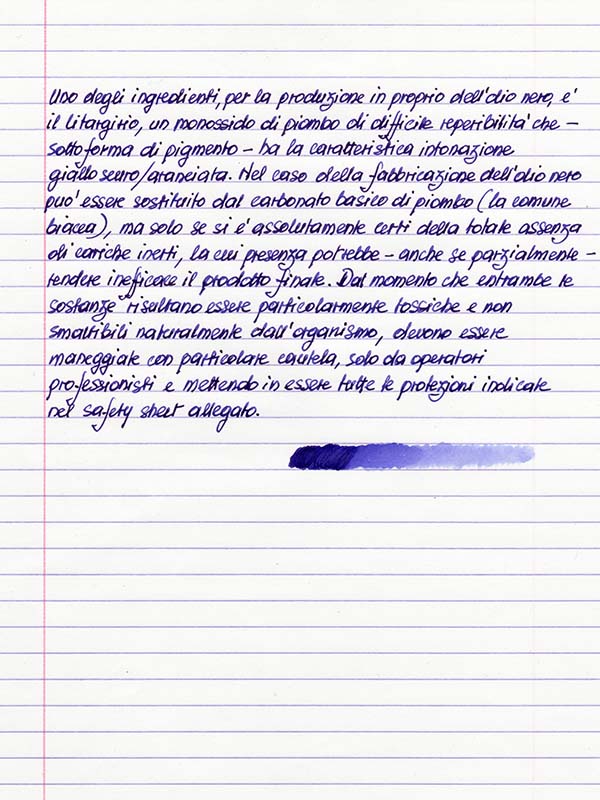 Uno degli ingredienti, per la produzione in proprio dell'olio nero, e'
il litargirio, un monossido di piombo di difficile reperibilita' che –
sotto forma di pigmento – ha la caratteristica intonazione
giallo scuro/aranciata. Nel caso della fabbricazione dell'olio nero
puo' essere sostituito dal carbonato basico di piombo (la comune
biacca), ma solo se si e' assolutamente certi della totale assenza
di cariche inerti, la cui presenza potrebbe – anche se parzialmente –
rendere inefficace il prodotto finale. Dal momento che entrambe le
sostanze risultano essere particolarmente tossiche e non
smaltibili naturalmente dall'organismo, devono essere
maneggiate con particolare cautela, solo da operatori
professionisti e mettendo in essere tutte le protezioni indicate
nel safety sheet allegato.